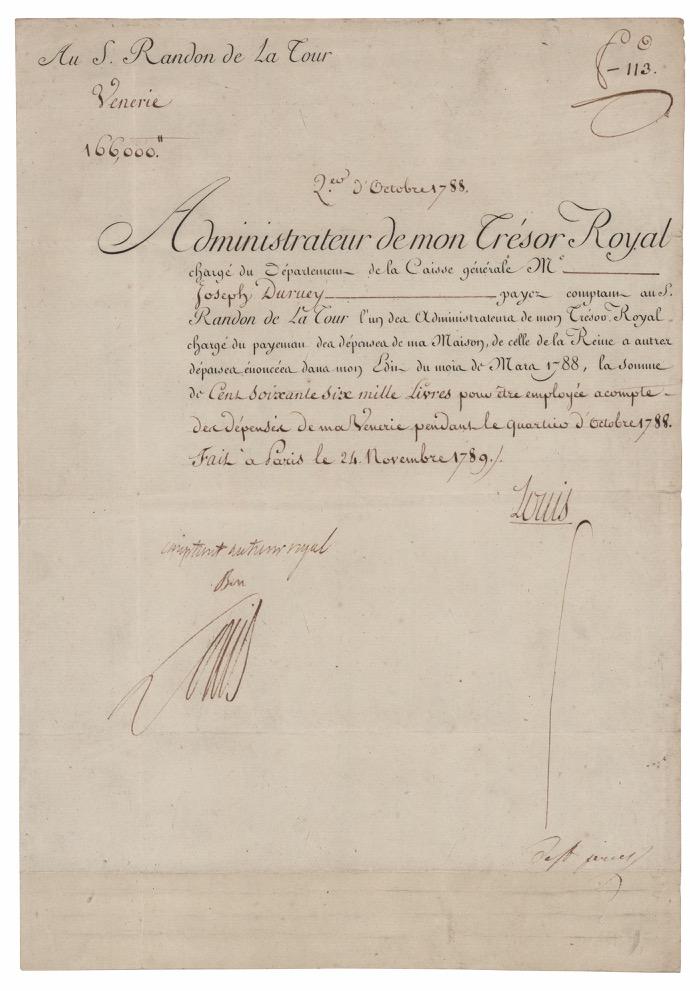 Au S. Randon de La Tour
113.
Venerie
166,000."
Q.er d'Octobre 1788.
Administrateur de mon Trésor Royal
chargé du Département de la Caisse générale M.
Joseph Duruey payez comptant au S.
Randon de La Tour l'un des Administrateurs de mon Trésor Royal
chargé du payement des dépenses de ma Maison, de celle de la Reine & autres
dépenses énoncées dans mon Edit du mois de Mars 1788, la somme
de Cent soixante six mille Livres pour être employée acompte
des dépenses de ma Venerie pendant le quartier d'Octobre 1788.
Fait à Paris le 24. Novembre 1789./.
Louis
comptant au tresor royal
Bon
Louis